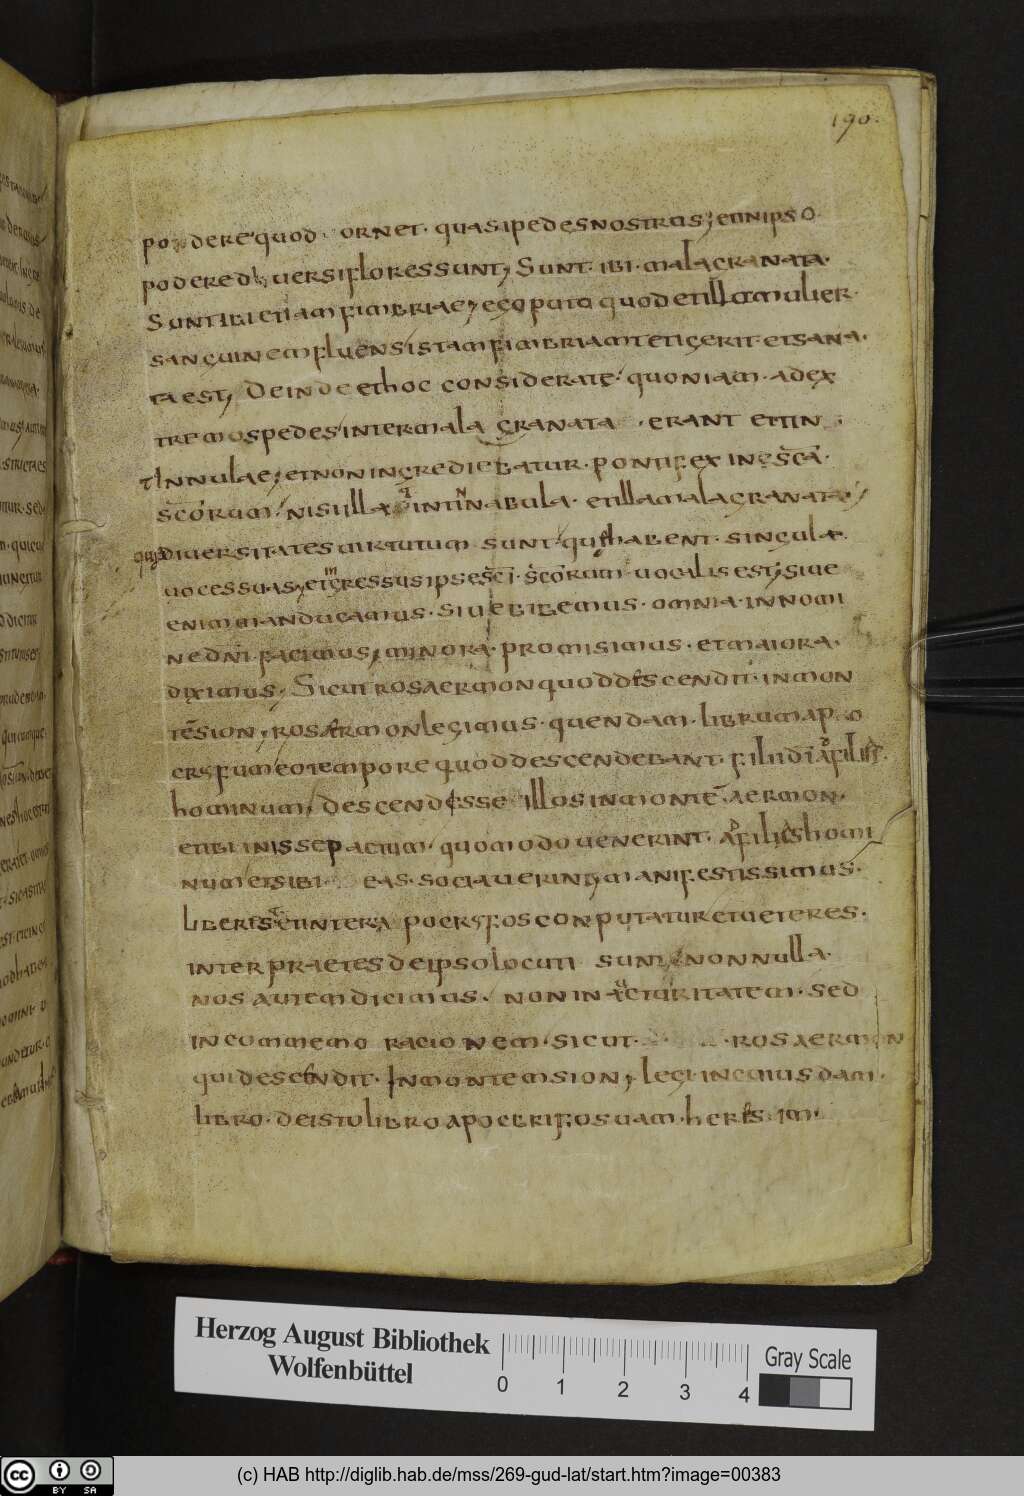 190.
podere quod ornet. quasi pedes nostros; et in ipso.
podere diversi flores sunt; Sunt. ibi. mala granata.
Sunt ibi etiam fimbriae; ego puto quod et illa mulier.
sanguinem fluens istam fimbriam tetigerit. et sana.
ta est; Deinde et hoc considerate. quoniam. ad ex
tremos pedes inter mala granata. erant et tin
tinnulae; et non ingrediebatur. pontifex in sc̄a sc̄a.
sc̄orum. nisi illa tintinnabula. et illa mala granata.
quia diversitates virtutum sunt qui habent. singulae.
voces suas; et ingressus ipse sc̄i. sc̄orum vocalis est; sive
enim manducamus. sive bibemus. omnia. in nomi
ne dn̄i. facimus; minora. promisimus. et maiora.
diximus; Sicut ros aermon quod discendit. in mon
tē sion; ros aermon legimus. quendam. librum apo
crifum eo tempore quod descendebant. filii dī ad filias
hominum; descendisse illos in montē. aermon.
et ibi inisse pactum quomodo venerint. ad filias homi
num et sibi eas. sociaverint; manifestissimus.
liber est et inter apocrifos conputatur et veteres.
interpraetes de ipso locuti sunt; nonnulla.
nos autem dicimus. non in auctoritatem. sed
in commemorationem. sicut. ros aermon
qui descendit. In montem sion; legi. in cuius dam.
libro. de isto libro apocrifo suam. heresim.
Herzog August Bibliothek
Wolfenbüttel
0 1 2 3 4
Gray Scale
cc BY SA
(c) HAB http://diglib.hab.de/mss/269-gud-lat/start.htm?image=00383